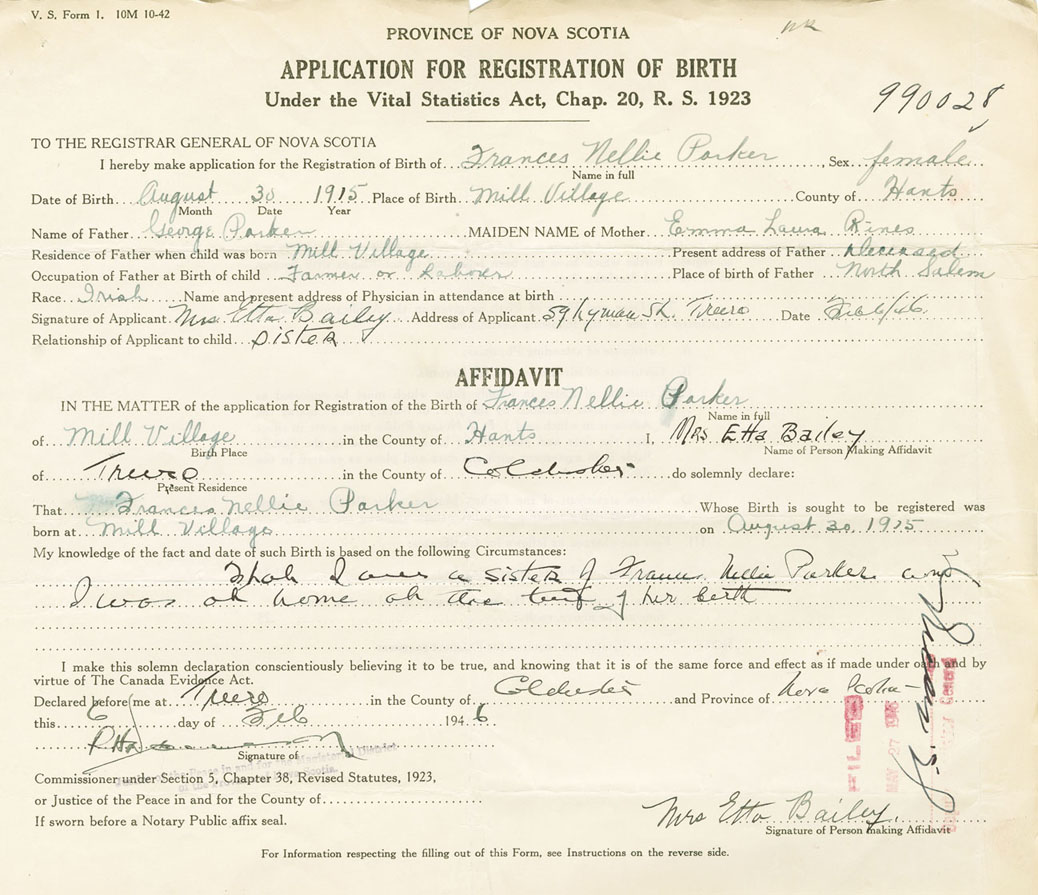 V. S. Form 1. 10M 10-42
PROVINCE OF NOVA SCOTIA
APPLICATION FOR REGISTRATION OF BIRTH
Under the Vital Statistics Act, Chap. 20, R. S. 1923
990028
TO THE REGISTRAR GENERAL OF NOVA SCOTIA
I hereby make application for the Registration of Birth of Frances Nellie Parker, Sex female
Name in full
Date of Birth August 30 1915 Place of Birth Mill Village County of Hants
Month Date Year
Name of Father George Parker MAIDEN NAME of Mother Emma Laura Rines
Residence of Father when child was born Mill Village Present address of Father Deceased
Occupation of Father at Birth of child Farmer or Laborer Place of birth of Father North Salem
Race Irish Name and present address of Physician in attendance at birth
Signature of Applicant Mrs Etta Bailey Address of Applicant 59 Lyman St. Truro Date Feb 6/46
Relationship of Applicant to child SISTER
AFFIDAVIT
IN THE MATTER of the application for Registration of the Birth of Frances Nellie Parker
Name in full
of Mill Village in the County of Hants I, Mrs Etta Bailey
Birth Place Name of Person Making Affidavit
of Truro in the County of Colchester do solemnly declare:
Present Residence
That Frances Nellie Parker Whose Birth is sought to be registered was
born at Mill Village on August 30 1915
My knowledge of the fact and date of such Birth is based on the following Circumstances:
That I am a sister of Frances Nellie Parker and
I was at home at the time of her birth
I make this solemn declaration conscientiously believing it to be true, and knowing that it is of the same force and effect as if made under oath and by
virtue of The Canada Evidence Act.
Declared before me at Truro in the County of Colchester and Province of Nova Scotia
this 6 day of Feb 1946
Signature of
Commissioner under Section 5, Chapter 38, Revised Statutes, 1923,
or Justice of the Peace in and for the County of
If sworn before a Notary Public affix seal.
Mrs Etta Bailey
Signature of Person making Affidavit
For Information respecting the filling out of this Form, see Instructions on the reverse side.
FILED
MAY 27